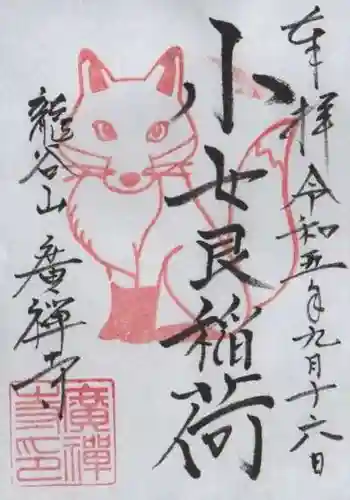 奉拝 令和五年九月十六日
小女良稲荷
龍谷山 廣禅寺
廣禅寺印